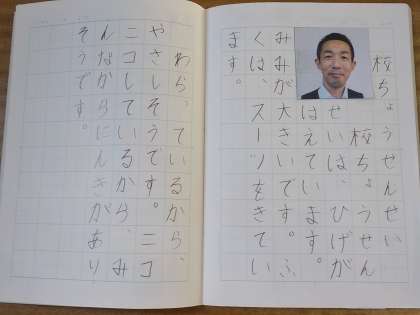 校ちょうせんせい
校ちょうせん
せいは、ひげが
はえています。
みみが大きいです。ふ
くは、スーツをきてい
ます。
わらっているから、
やさしそうです。ニコ
ニコしているから、み
んなからにんきがあり
そうです。